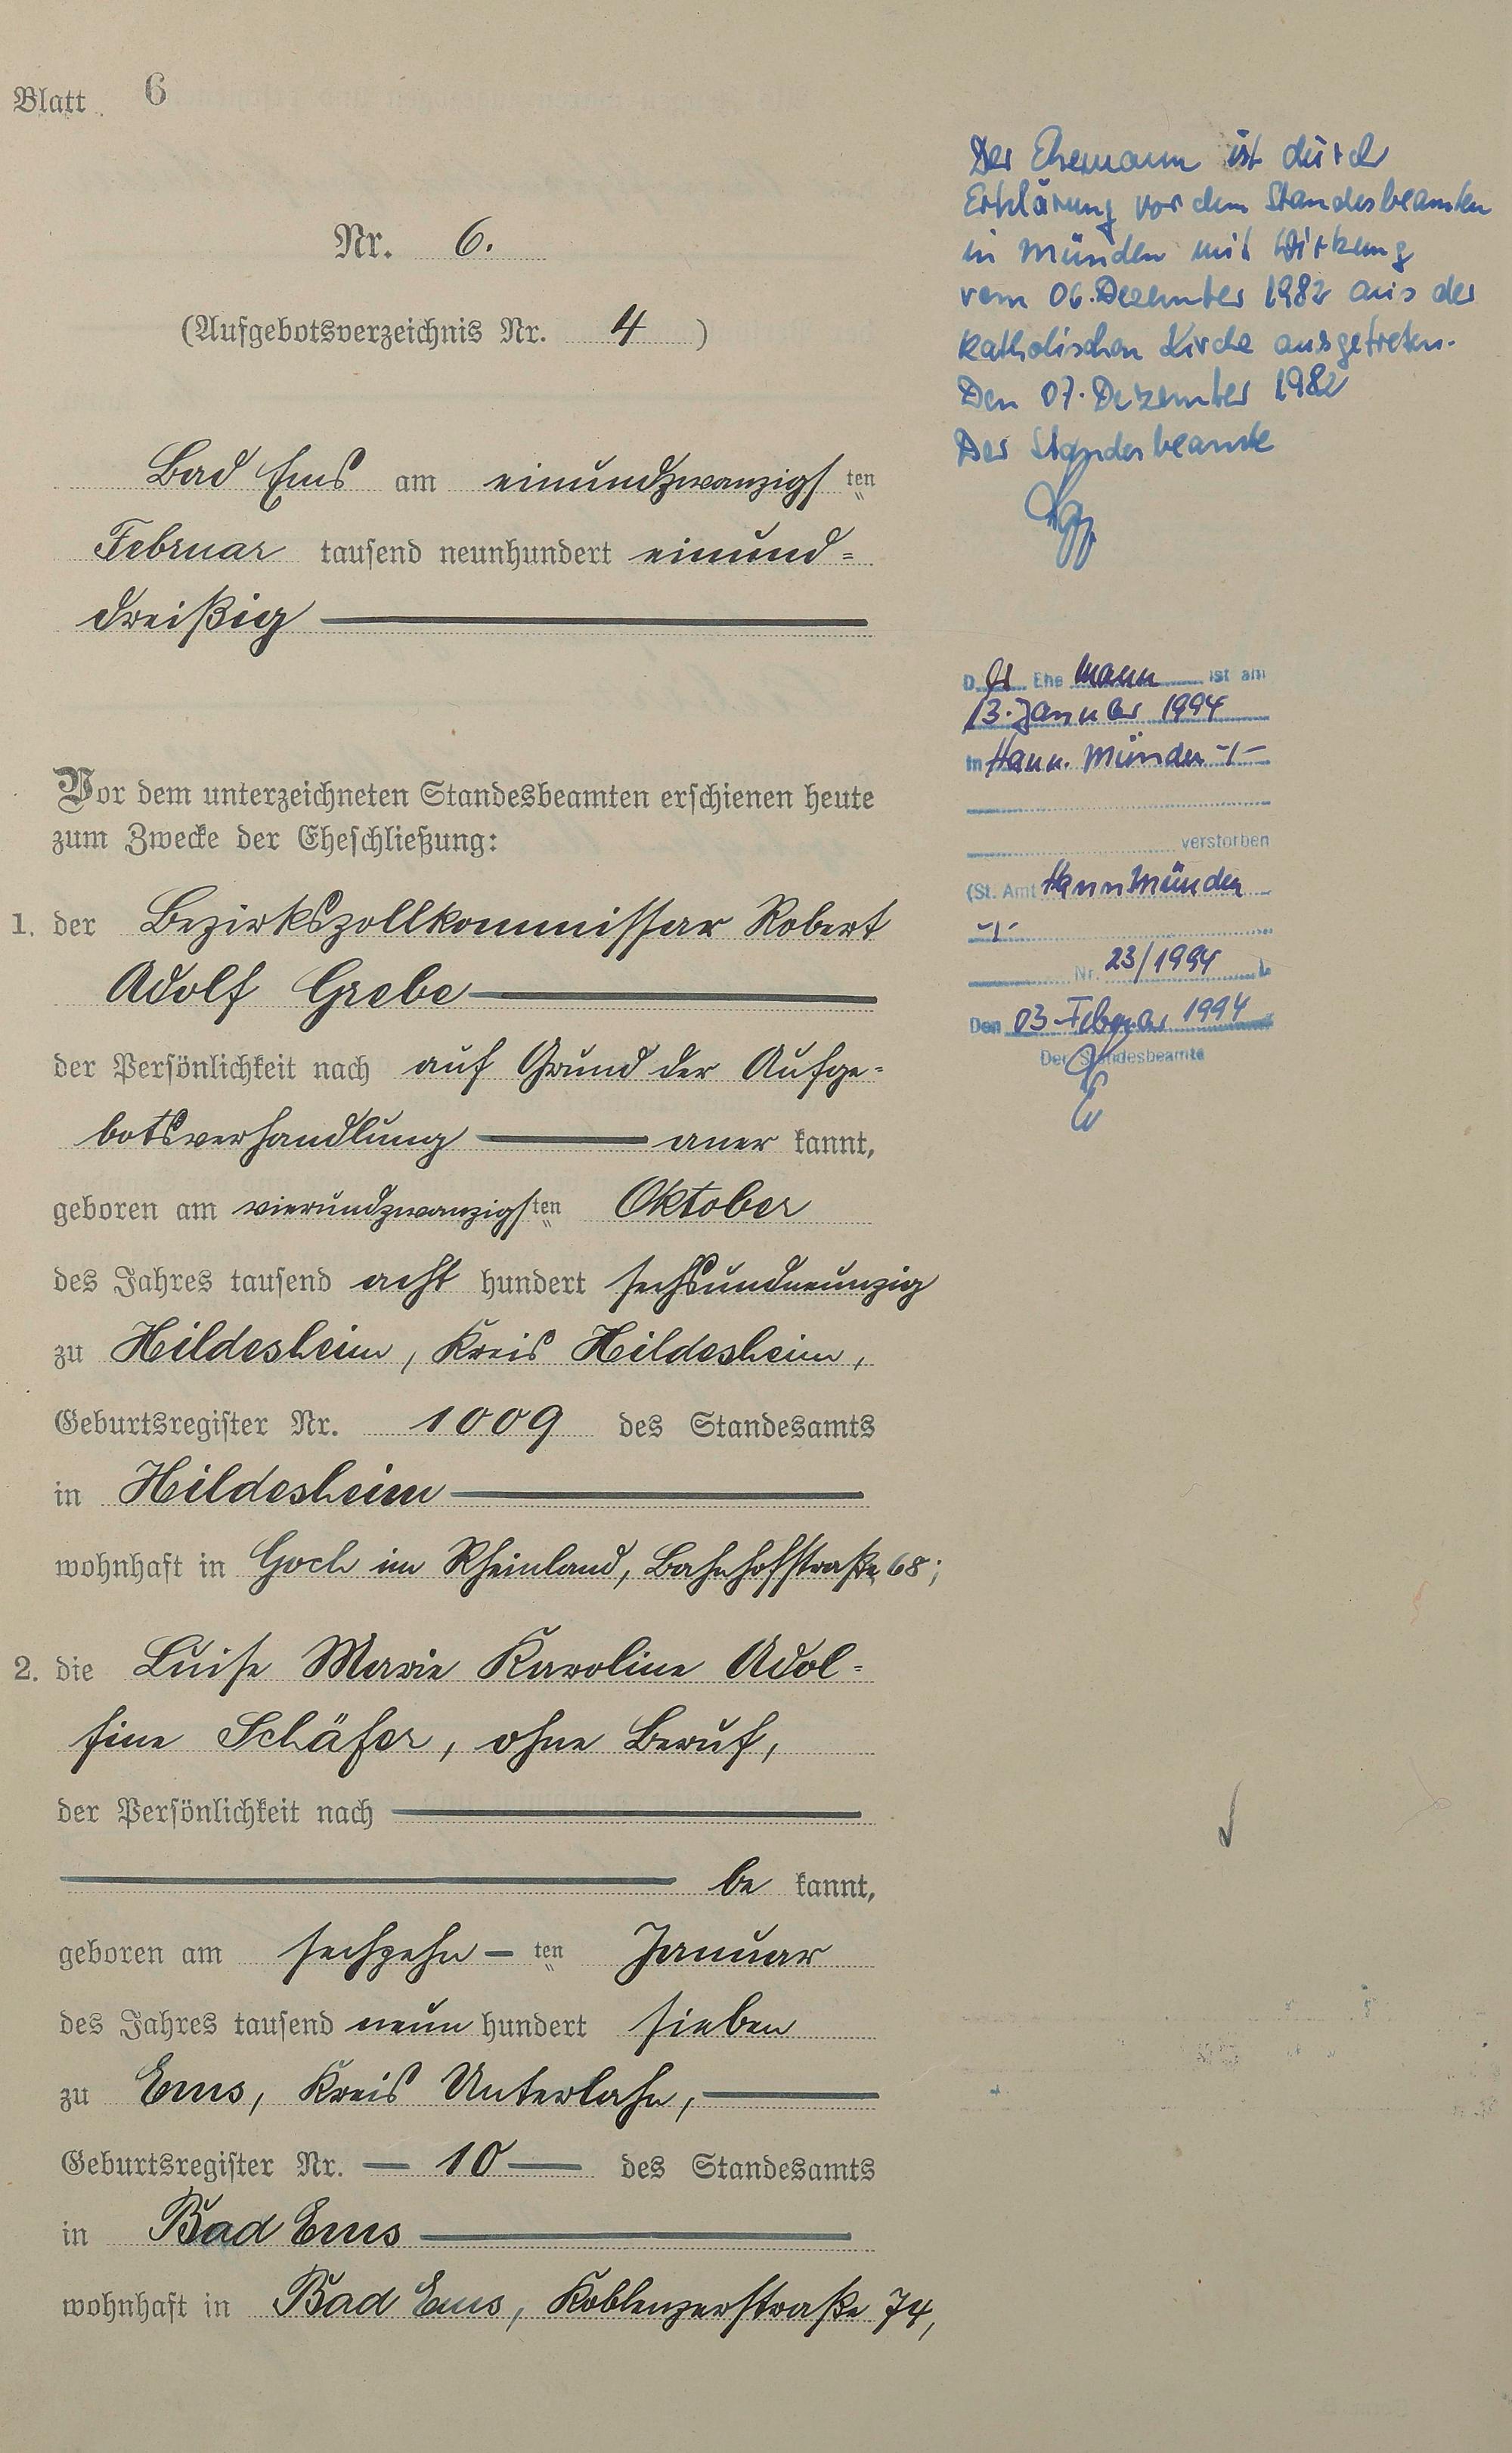 Blatt 6
Nr. 6.
(Aufgebotsverzeichnis Nr. 4 )
Bad Ems am einundzwanzigsten
Februar tausend neunhundert einund=
dreißig
Vor dem unterzeichneten Standesbeamten erschienen heute
zum Zwecke der Eheschließung:
1. der Bezirkszollkommissar Robert
Adolf Grebe
der Persönlichkeit nach auf Grund der Aufge=
botsverhandlung aner kannt,
geboren am vierundzwanzigsten Oktober
des Jahres tausend acht hundert sechsundneunzig
zu Hildesheim, Kreis Hildesheim,
Geburtsregister Nr. 1009 des Standesamts
in Hildesheim
wohnhaft in Goch im Rheinland, Bahnhofstraße 68;
2. die Luise Marie Karoline Adol=
fine Schäfer, ohne Beruf,
der Persönlichkeit nach
be kannt,
geboren am sechzehn - ten Januar
des Jahres tausend neun hundert sieben
zu Ems, Kreis Unterlahn,
Geburtsregister Nr. - 10 - des Standesamts
in Bad Ems
wohnhaft in Bad Ems, Koblenzerstraße 74,
Der Ehemann ist durch
Erklärung vor dem Standesbeamten
in Münden mit Wirkung
vom 06. Dezember 1982 aus der
katholischen Kirche ausgetreten.
Den 07. Dezember 1982
Der Standesbeamte
Der Ehe mann ist am
13. Januar 1994
in Hann. Münden -/-
verstorben
(St. Amt Hann Münden
-/-
Nr. 23/1994
Den 03. Februar 1994
Der Standesbeamte